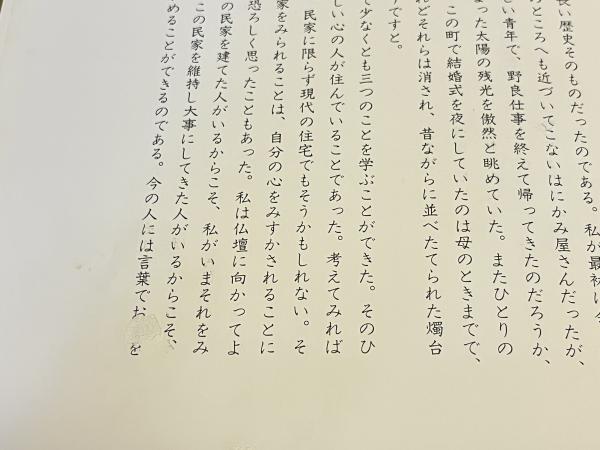 長い歴史そのものだったのである。私が最初に
のところへも近づいてこないはにかみ屋さんだったが、
しい青年で、野良仕事を終えて帰ってきたのだろうか、
なった太陽の残光を傲然と眺めていた。またひとりの
この町で結婚式を夜にしていたのは母のときまでで、
れどそれらは消され、昔ながらに並べたてられた燭台
うですと。
で少なくとも三つのことを学ぶことができた。そのひ
しい心の人が住んでいることであった。考えてみれば
民家に限らず現代の住宅でもそうかもしれない。そ
家をみられることは、自分の心をみすかされることに
恐ろしく思ったこともあった。私は仏壇に向かってよ
の民家を建てた人がいるからこそ、私がいまそれをみ
この民家を維持し大事にしてきた人がいるからこそ、
めることができるのである。今の人には言葉でお を